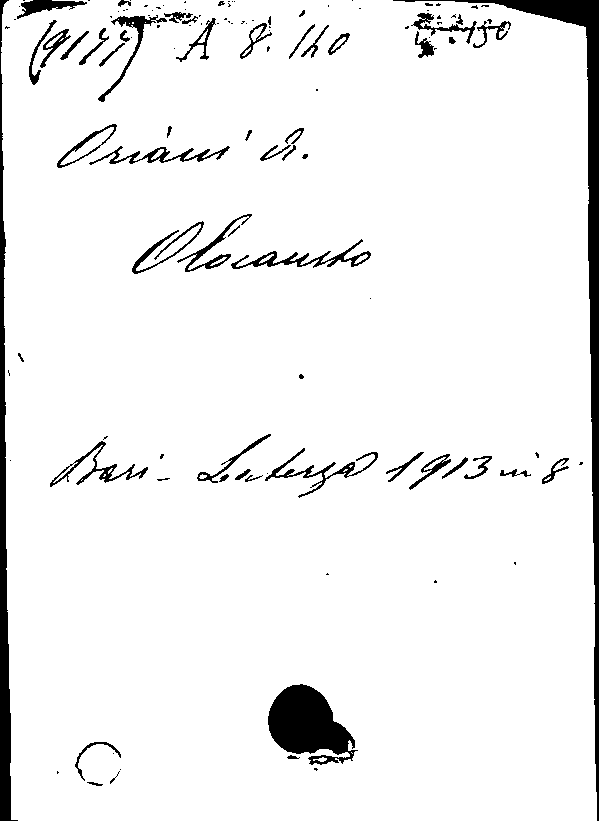 (9177) A 8. 140
Oriani A.
Olocausto
Bari - Laterza 1913 in 8.